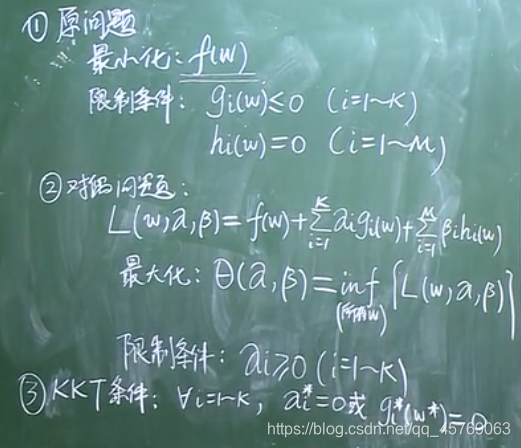 ① 原问题
最小化: f(w)
限制条件: gi(w)≤0 (i=1~K)
hi(w)=0 (i=1~M)
② 对偶问题:
L(w,α,β)=f(w)+∑_{i=1}^{K}αigi(w)+∑_{i=1}^{M}βihi(w)
最大化: θ(α,β)=inf_{(所有w)}[L(w,α,β)]
限制条件: αi≥0 (i=1~K)
③ KKT条件: ∀i=1~K, αi*=0或 gi*(w*)=0
https://blog.csdn.net/qq_45769063